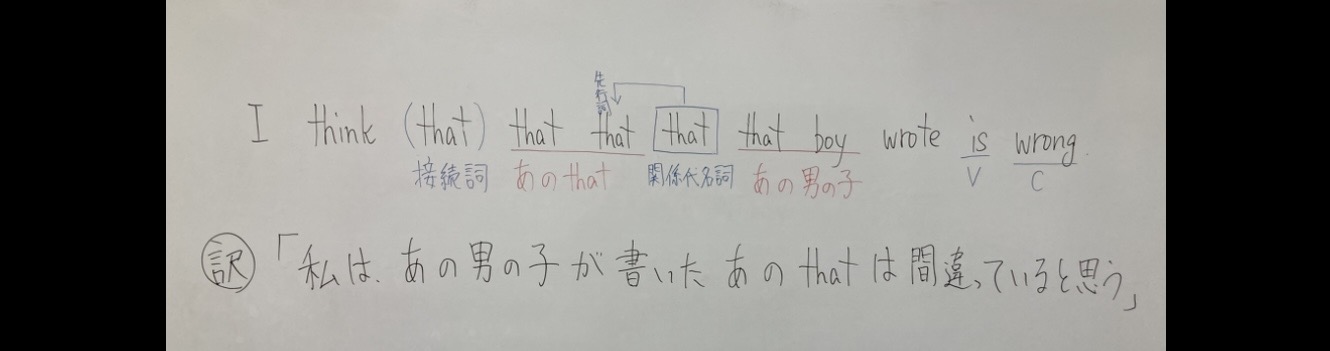 先行詞
I think (that) that that that that boy wrote is wrong.
接続詞 あのthat 関係代名詞 あの男の子 V C
訳 「私は、あの男の子が書いたあのthatは間違っていると思う」